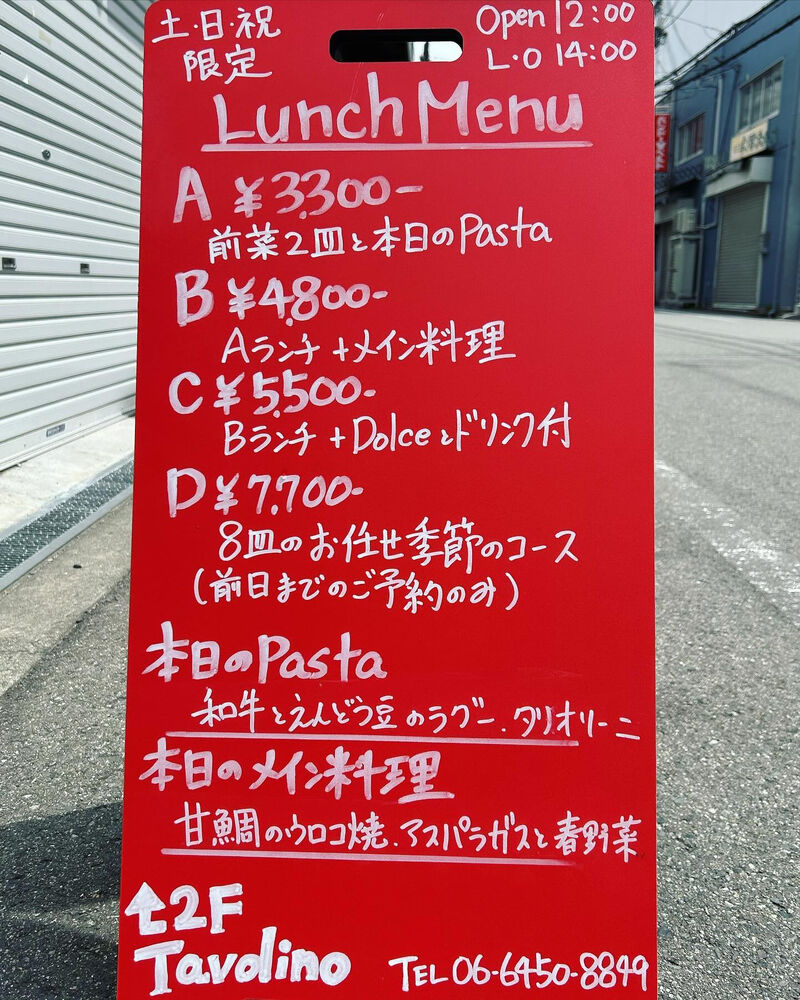 土・日・祝
限定
Open 12:00
L・O 14:00
Lunch Menu
A ¥3,300-
前菜2皿と本日のPasta
B ¥4,800-
Aランチ+メイン料理
C ¥5,500-
Bランチ+Dolceとドリンク付
D ¥7,700-
8皿のお任せ季節のコース
(前日までのご予約のみ)
本日のPasta
和牛とえんどう豆のラグー、タリオリーニ
本日のメイン料理
甘鯛のウロコ焼、アスパラガスと春野菜
2F
Tavolino
TEL 06-6450-8849